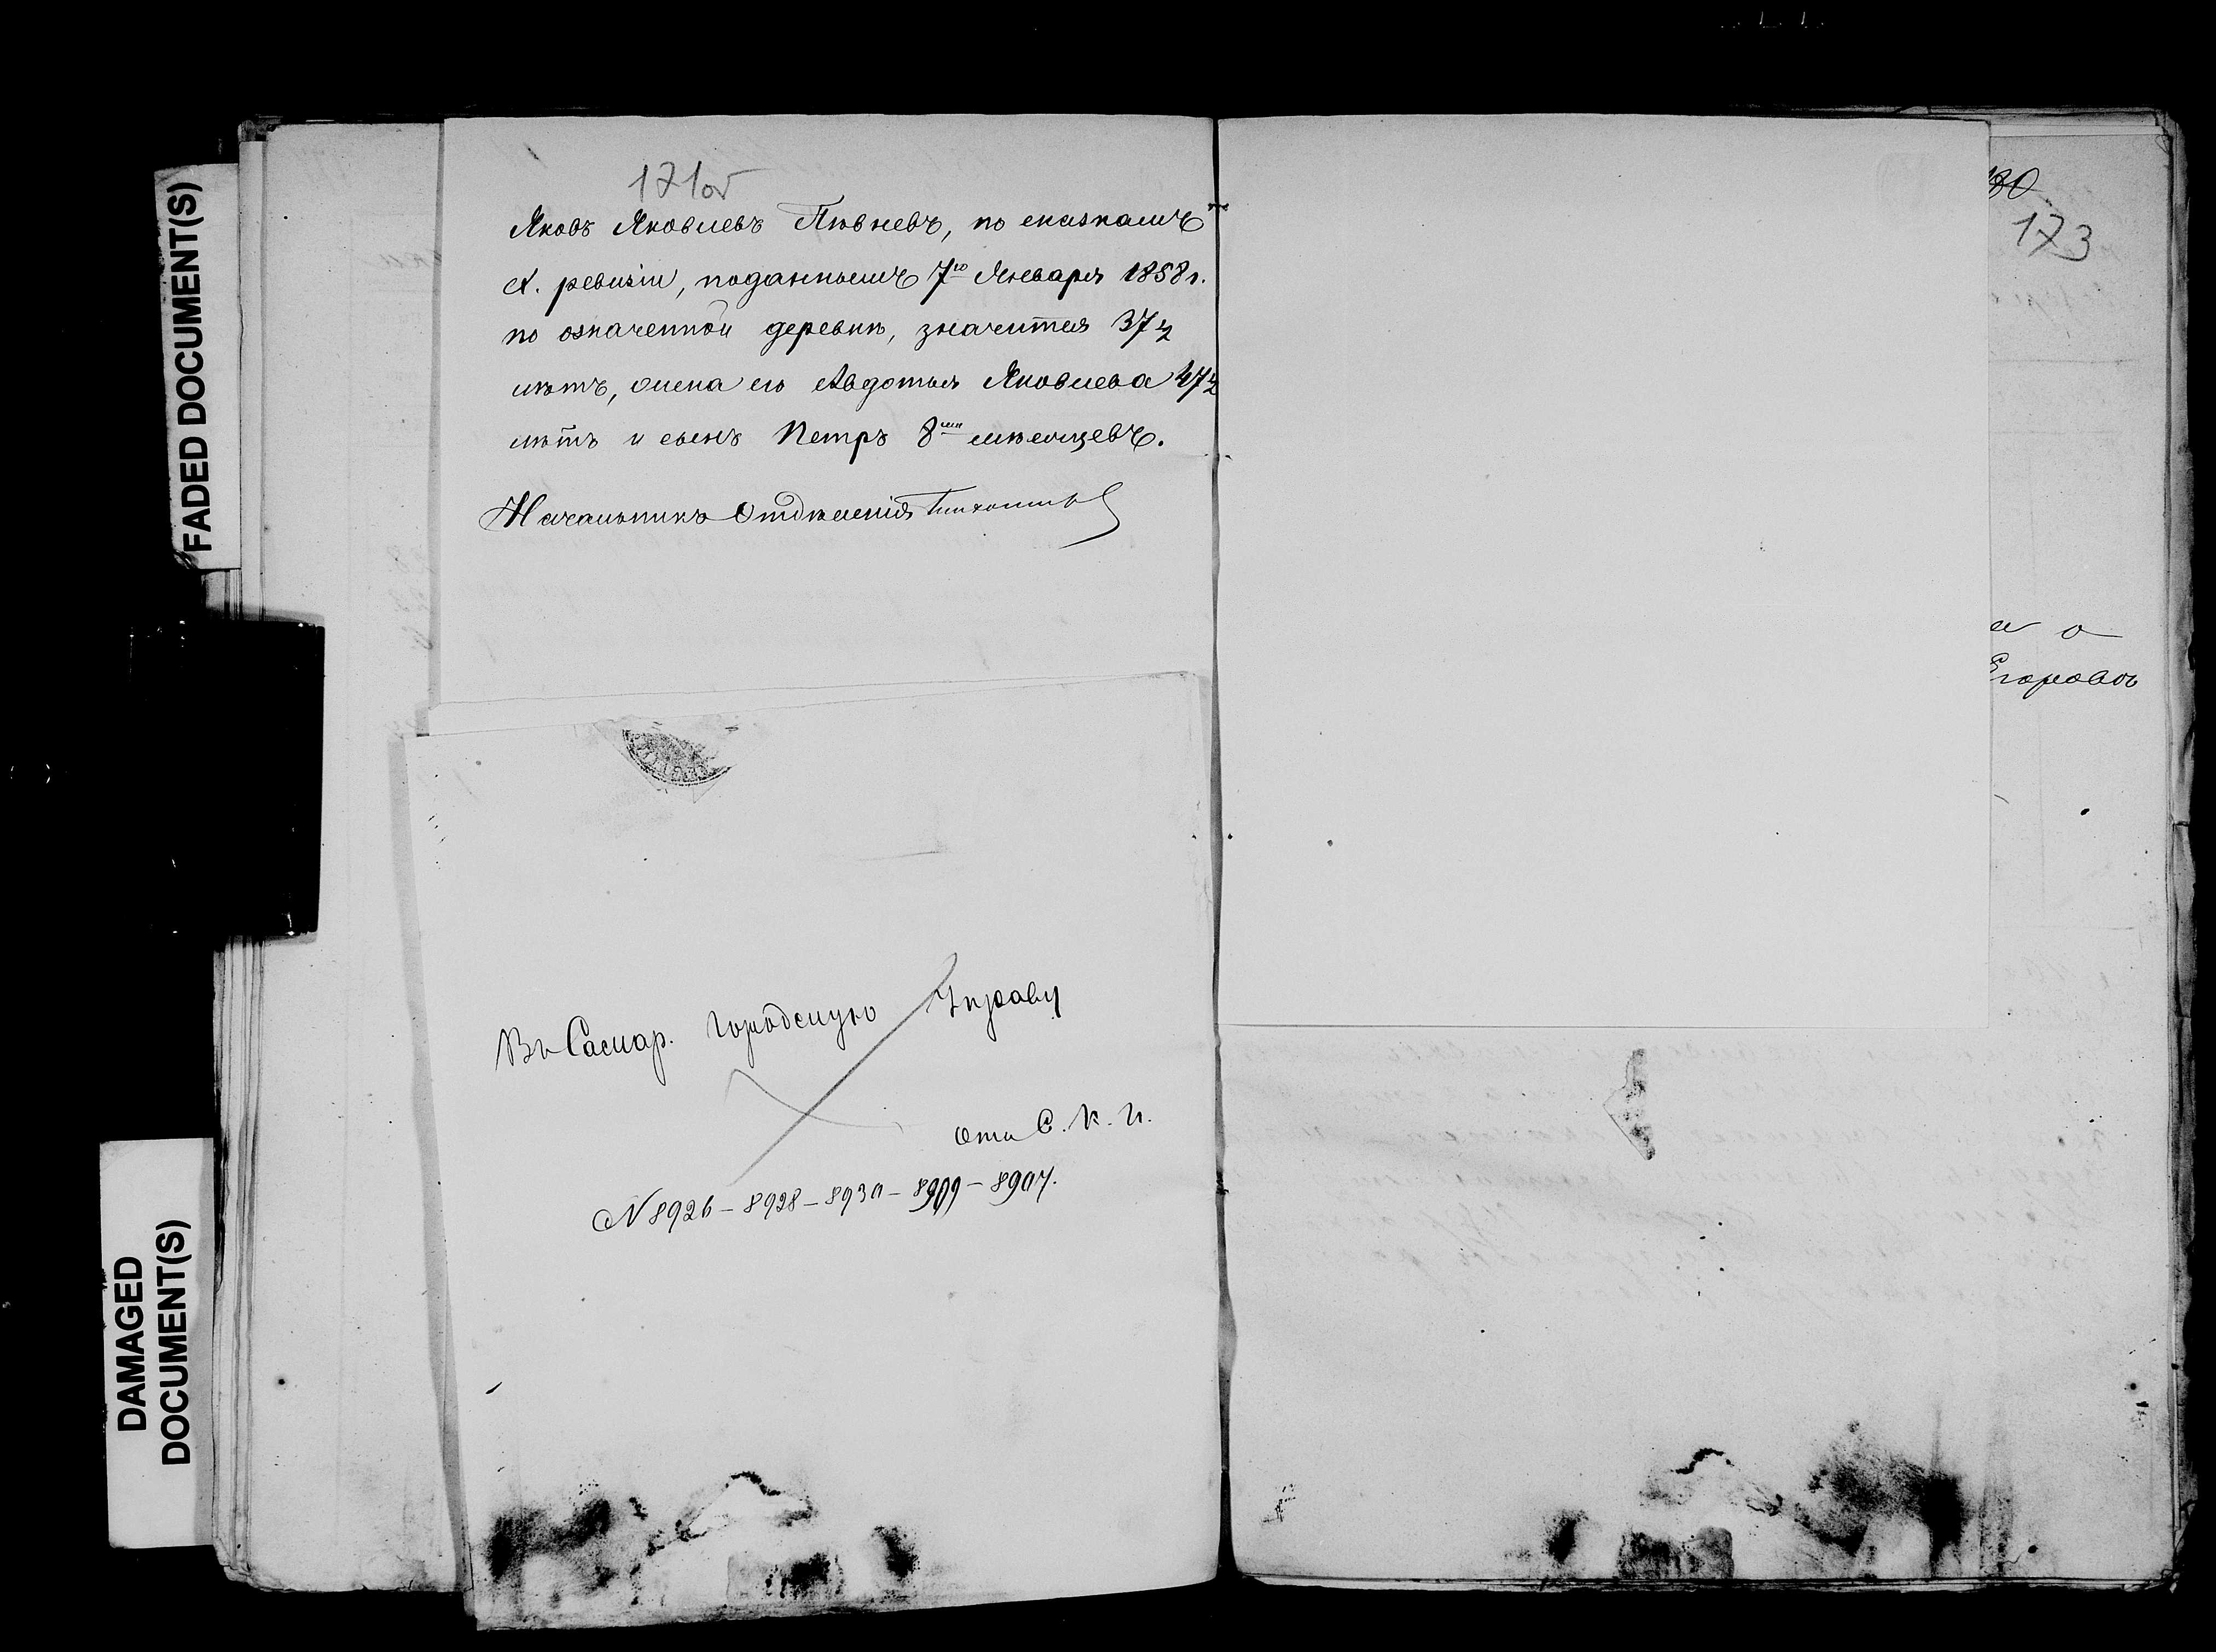 FADED DOCUMENT(S)
171об
Яковъ Яковлевъ Пѣвневъ, по сказкамъ
X. ревизіи, поданнымъ 7го Января 1858 г.
по означенной деревнѣ, значится 37½
лѣтъ, жена его Авдотья Яковлева 47½
лѣтъ и сынъ Петръ 8ми мѣсяцевъ.
Начальникъ Отдѣленія
Въ Самар. Городскую Управу
отъ С. К. П.
N 8926 – 8928 – 8930 – 8909 – 8907.
DAMAGED
DOCUMENT(S)
173
а о
Егоровъ